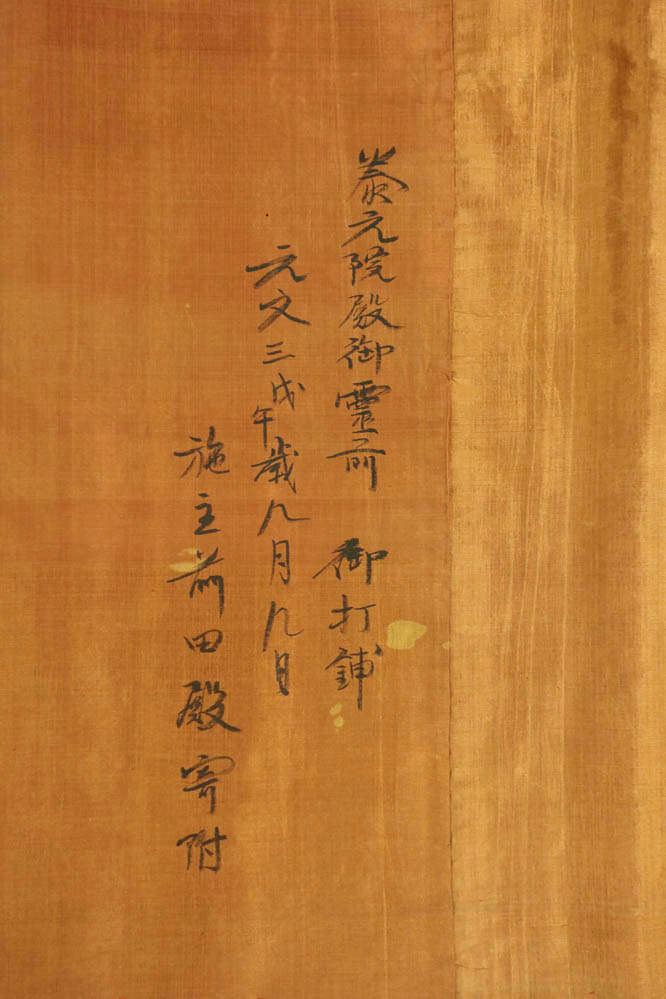 泰元院殿御霊前 御打鋪
元文三戊午歳九月九日
施主前田殿寄附